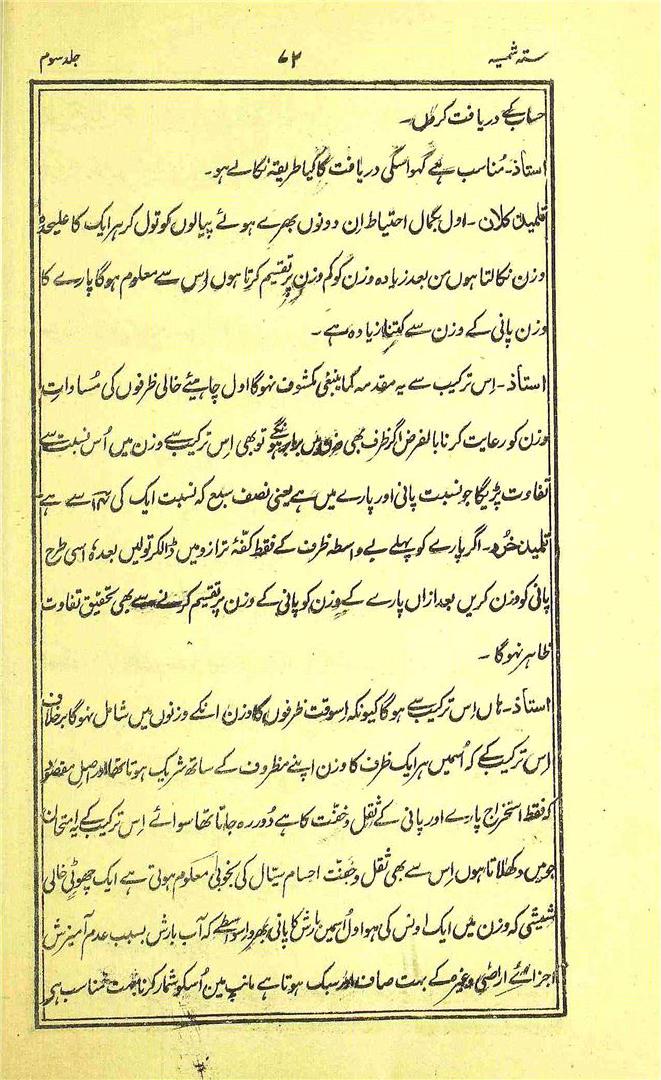 ستہ شمسیہ ۷۲ جلد سوم
حساب کے دریافت کرلوں۔
استاذ۔ مُناسب ہے کہو اسکی دریافت کا کیا طریقہ نکالے ہو۔
تلمیذ کلان۔ اول بکمال احتیاط اِن دونوں بھرے ہوئے پیالوں کو تول کر ہر ایک کا علیحدہ
وزن نکالتا ہوں من بعد زیادہ وزن کو کم وزن پر تقسیم کرتا ہوں اِس سے معلوم ہوگا پارے کا
وزن پانی کے وزن سے کتنا زیادہ ہے۔
استاذ۔ اِس ترکیب سے یہ مقدمہ کما ینبغی مکشوف نہوگا اول چاہیئے خالی ظرفوں کی مُساوات
وزن کو رعایت کرنا بالفرض اگر ظرف بھی وزن میں برابر ہونگے تو بھی اِس ترکیب سے وزن میں اُس نسبت سے
تفاوت پڑیگا جو نسبت پانی اور پارے میں ہے یعنی نصف سبع کہ نسبت ایک کی ۱۴ سے ہے
تلمیذ خرد۔ اگر پارے کو پہلے بے واسطہ ظرف کے فقط کفّۂ ترازو میں ڈالکر تولیں بعدہٗ اسی طرح
پانی کو وزن کریں بعد ازاں پارے کے وزن کو پانی کے وزن پر تقسیم کرنے سے بھی تحقیق تفاوت
ظاہر نہوگا۔
استاذ۔ ہاں اِس ترکیب سے ہوگا کیونکہ اِسوقت ظرفوں کا وزن انکے وزنوں میں شامل نہوگا برخلاف
اِس ترکیب کے کہ اُسمیں ہر ایک ظرف کا وزن اپنے مظروف کے ساتھ شریک ہوتا تھا اور اصل مقصود
کہ فقط استخراج پارے اور پانی کے ثقل و خفّت کا ہے دُور رہ جاتا تھا سوائے اِس ترکیب کے یہ امتحان
جو میں دکھلاتا ہوں اِس سے بھی ثقل و خفّت اجسام سیّال کی بخوبی معلوم ہوتی ہے ایک چھوٹی خالی
شیشی کہ وزن میں ایک اونس کی ہو اول اُسمیں بارش کا پانی بھرو اسواسطے کہ آب بارش بسبب عدم آمیزش
اجزائے ارضی وغیرہ کے بہت صاف اور سبک ہوتا ہے مانپ مین اُسکو شمار کرنا بہت مناسب ہے